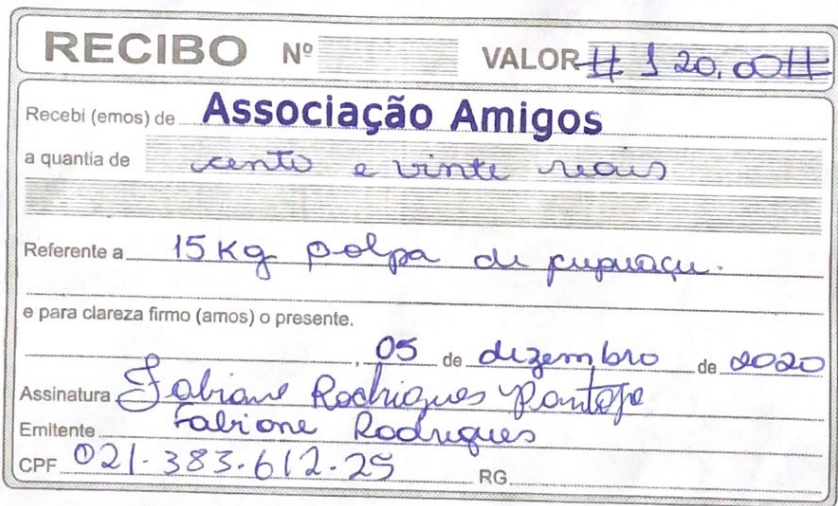 RECIBO Nº VALOR # 120,00 #
Recebi (emos) de Associação Amigos
a quantia de cento e vinte reais
Referente a 15 Kg polpa de cupuaçu.
e para clareza firmo (amos) o presente.
, 05 de dezembro de 2020
Assinatura Fabiane Rodrigues Pantoja
Emitente Fabiane Rodrigues
CPF 021.383.612-25 RG